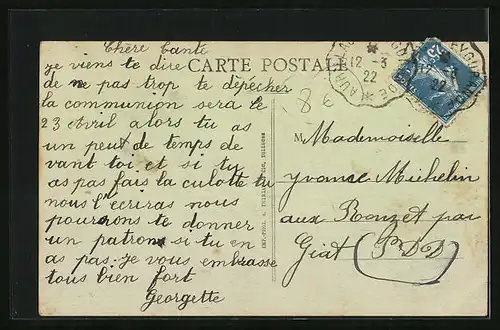 Chère tante
je viens te dire
de ne pas trop te dépécher
la communion sera le
23 Avril alors tu as
un peu de temps de
vant toi et si tu
as pas fais la culotte tu
nous l'écriras nous
pourrons te donner
un patron si tu en
as pas. je vous embrasse
tous bien fort
Georgette
CARTE POSTALE
12 -3
22
25
83
M Mademoiselle
Yvonne Michelin
aux Rouzet par
Giat (P.D.D)